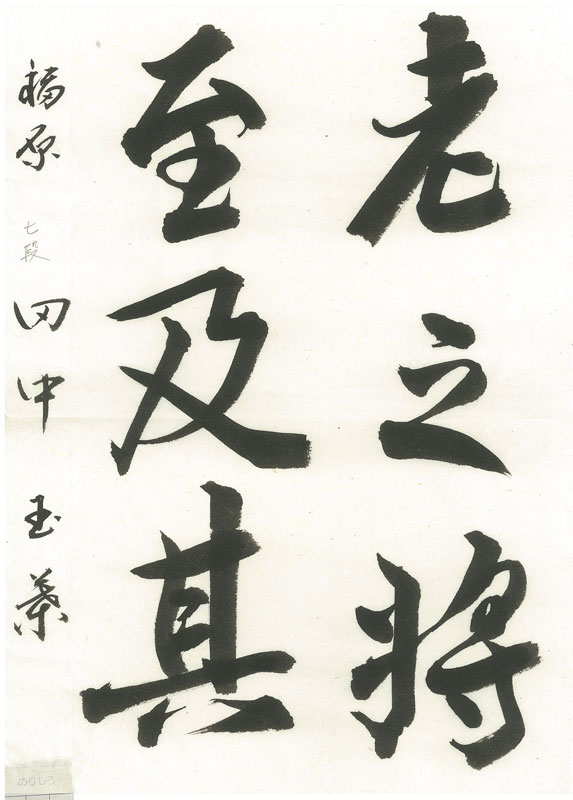 老之将
至及其
福原 七段 田中 玉葉
のりしろ